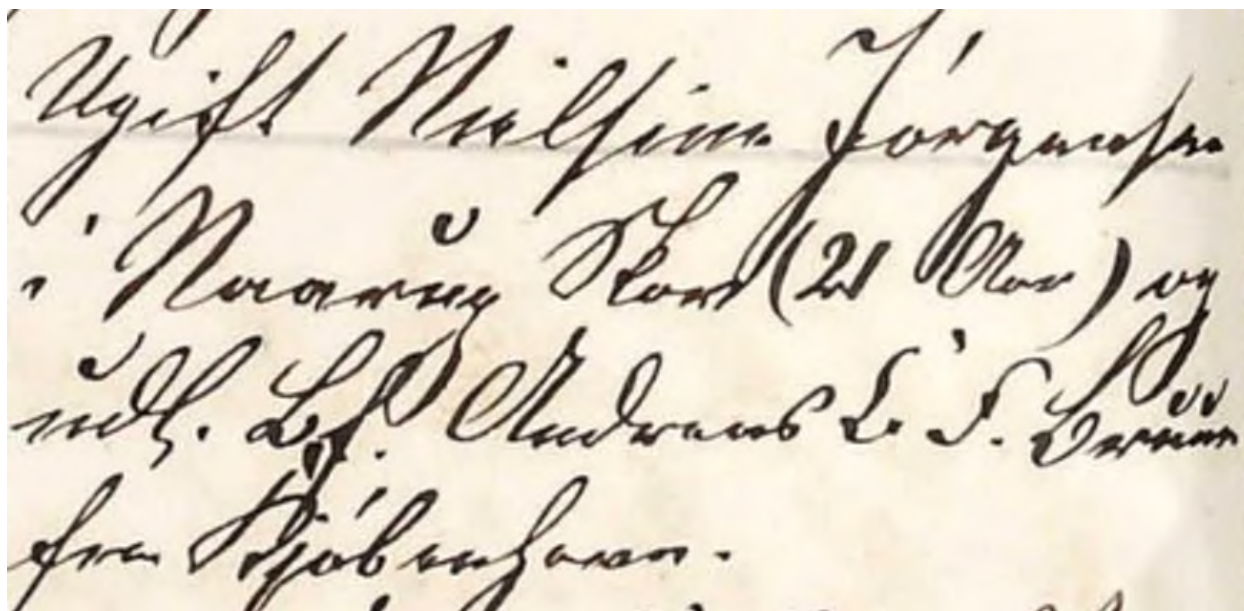 Ugift Nielsine Jørgensen
i Naarup Skov (21 Aar) og
udl. Bf. Andreas L. F. Bruun
fra Kjøbenhavn.